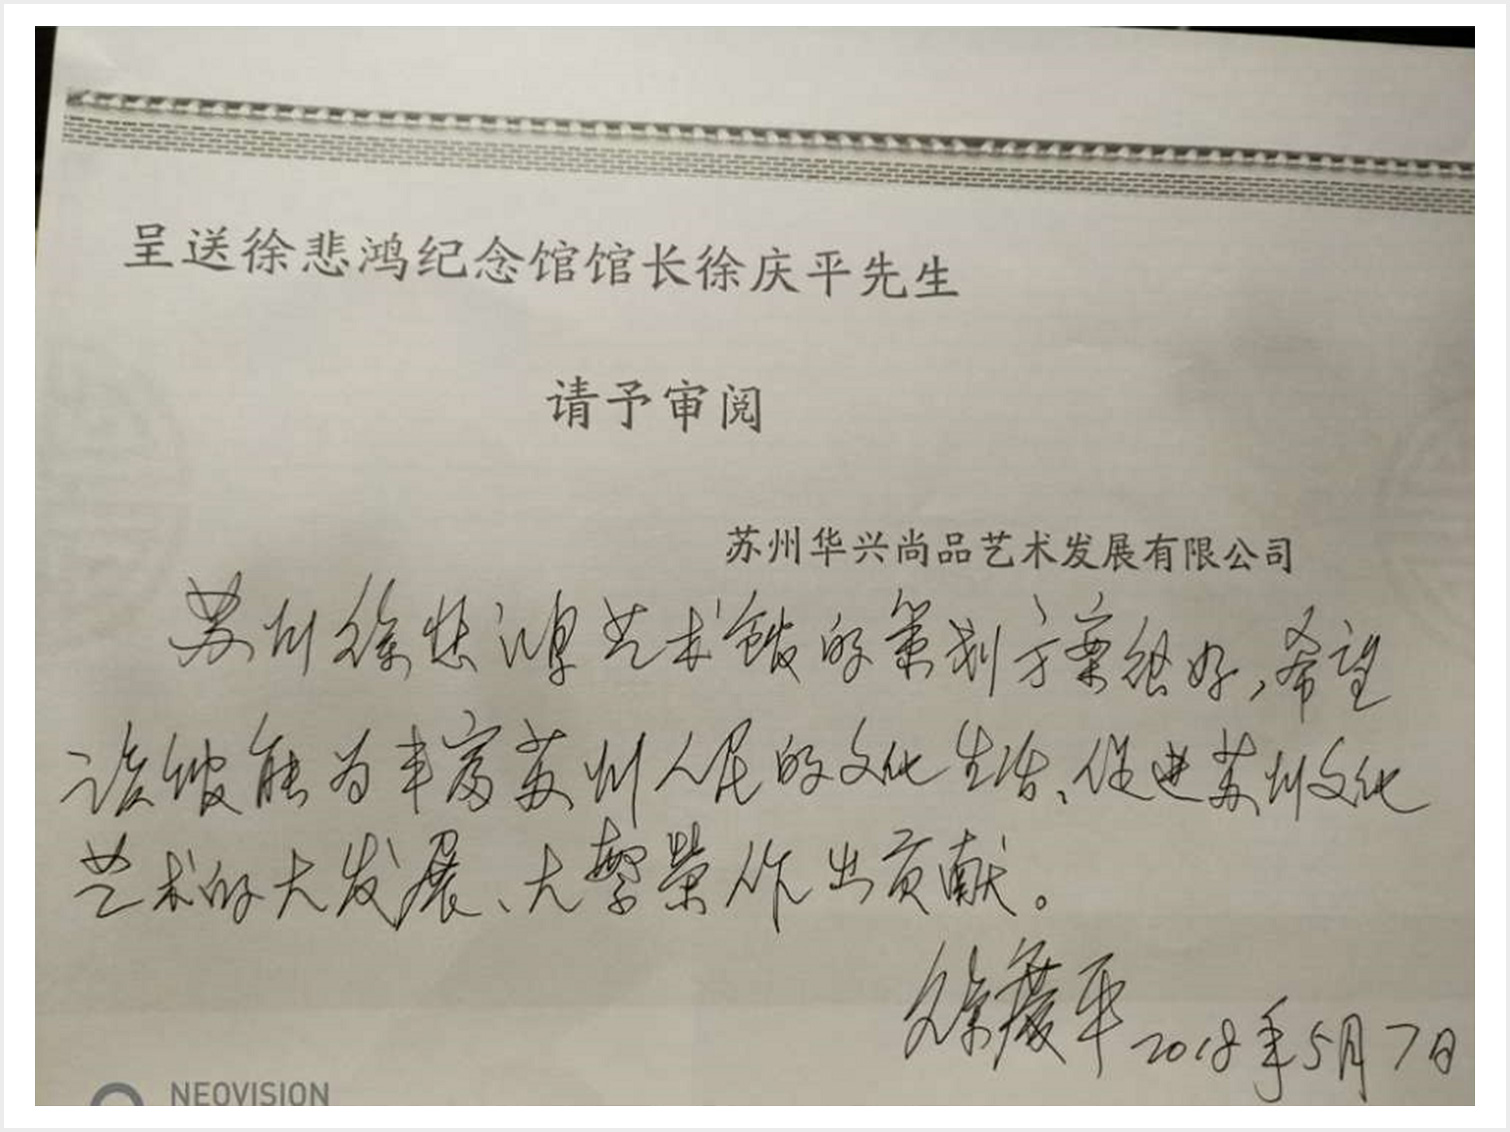 呈送徐悲鸿纪念馆馆长徐庆平先生
请予审阅
苏州华兴尚品艺术发展有限公司
苏州徐悲鸿艺术馆的策划方案很好,希望
该馆能为丰富苏州人民的文化生活、促进苏州文化
艺术的大发展、大繁荣作出贡献。
徐庆平 2018年5月7日
NEOVISION